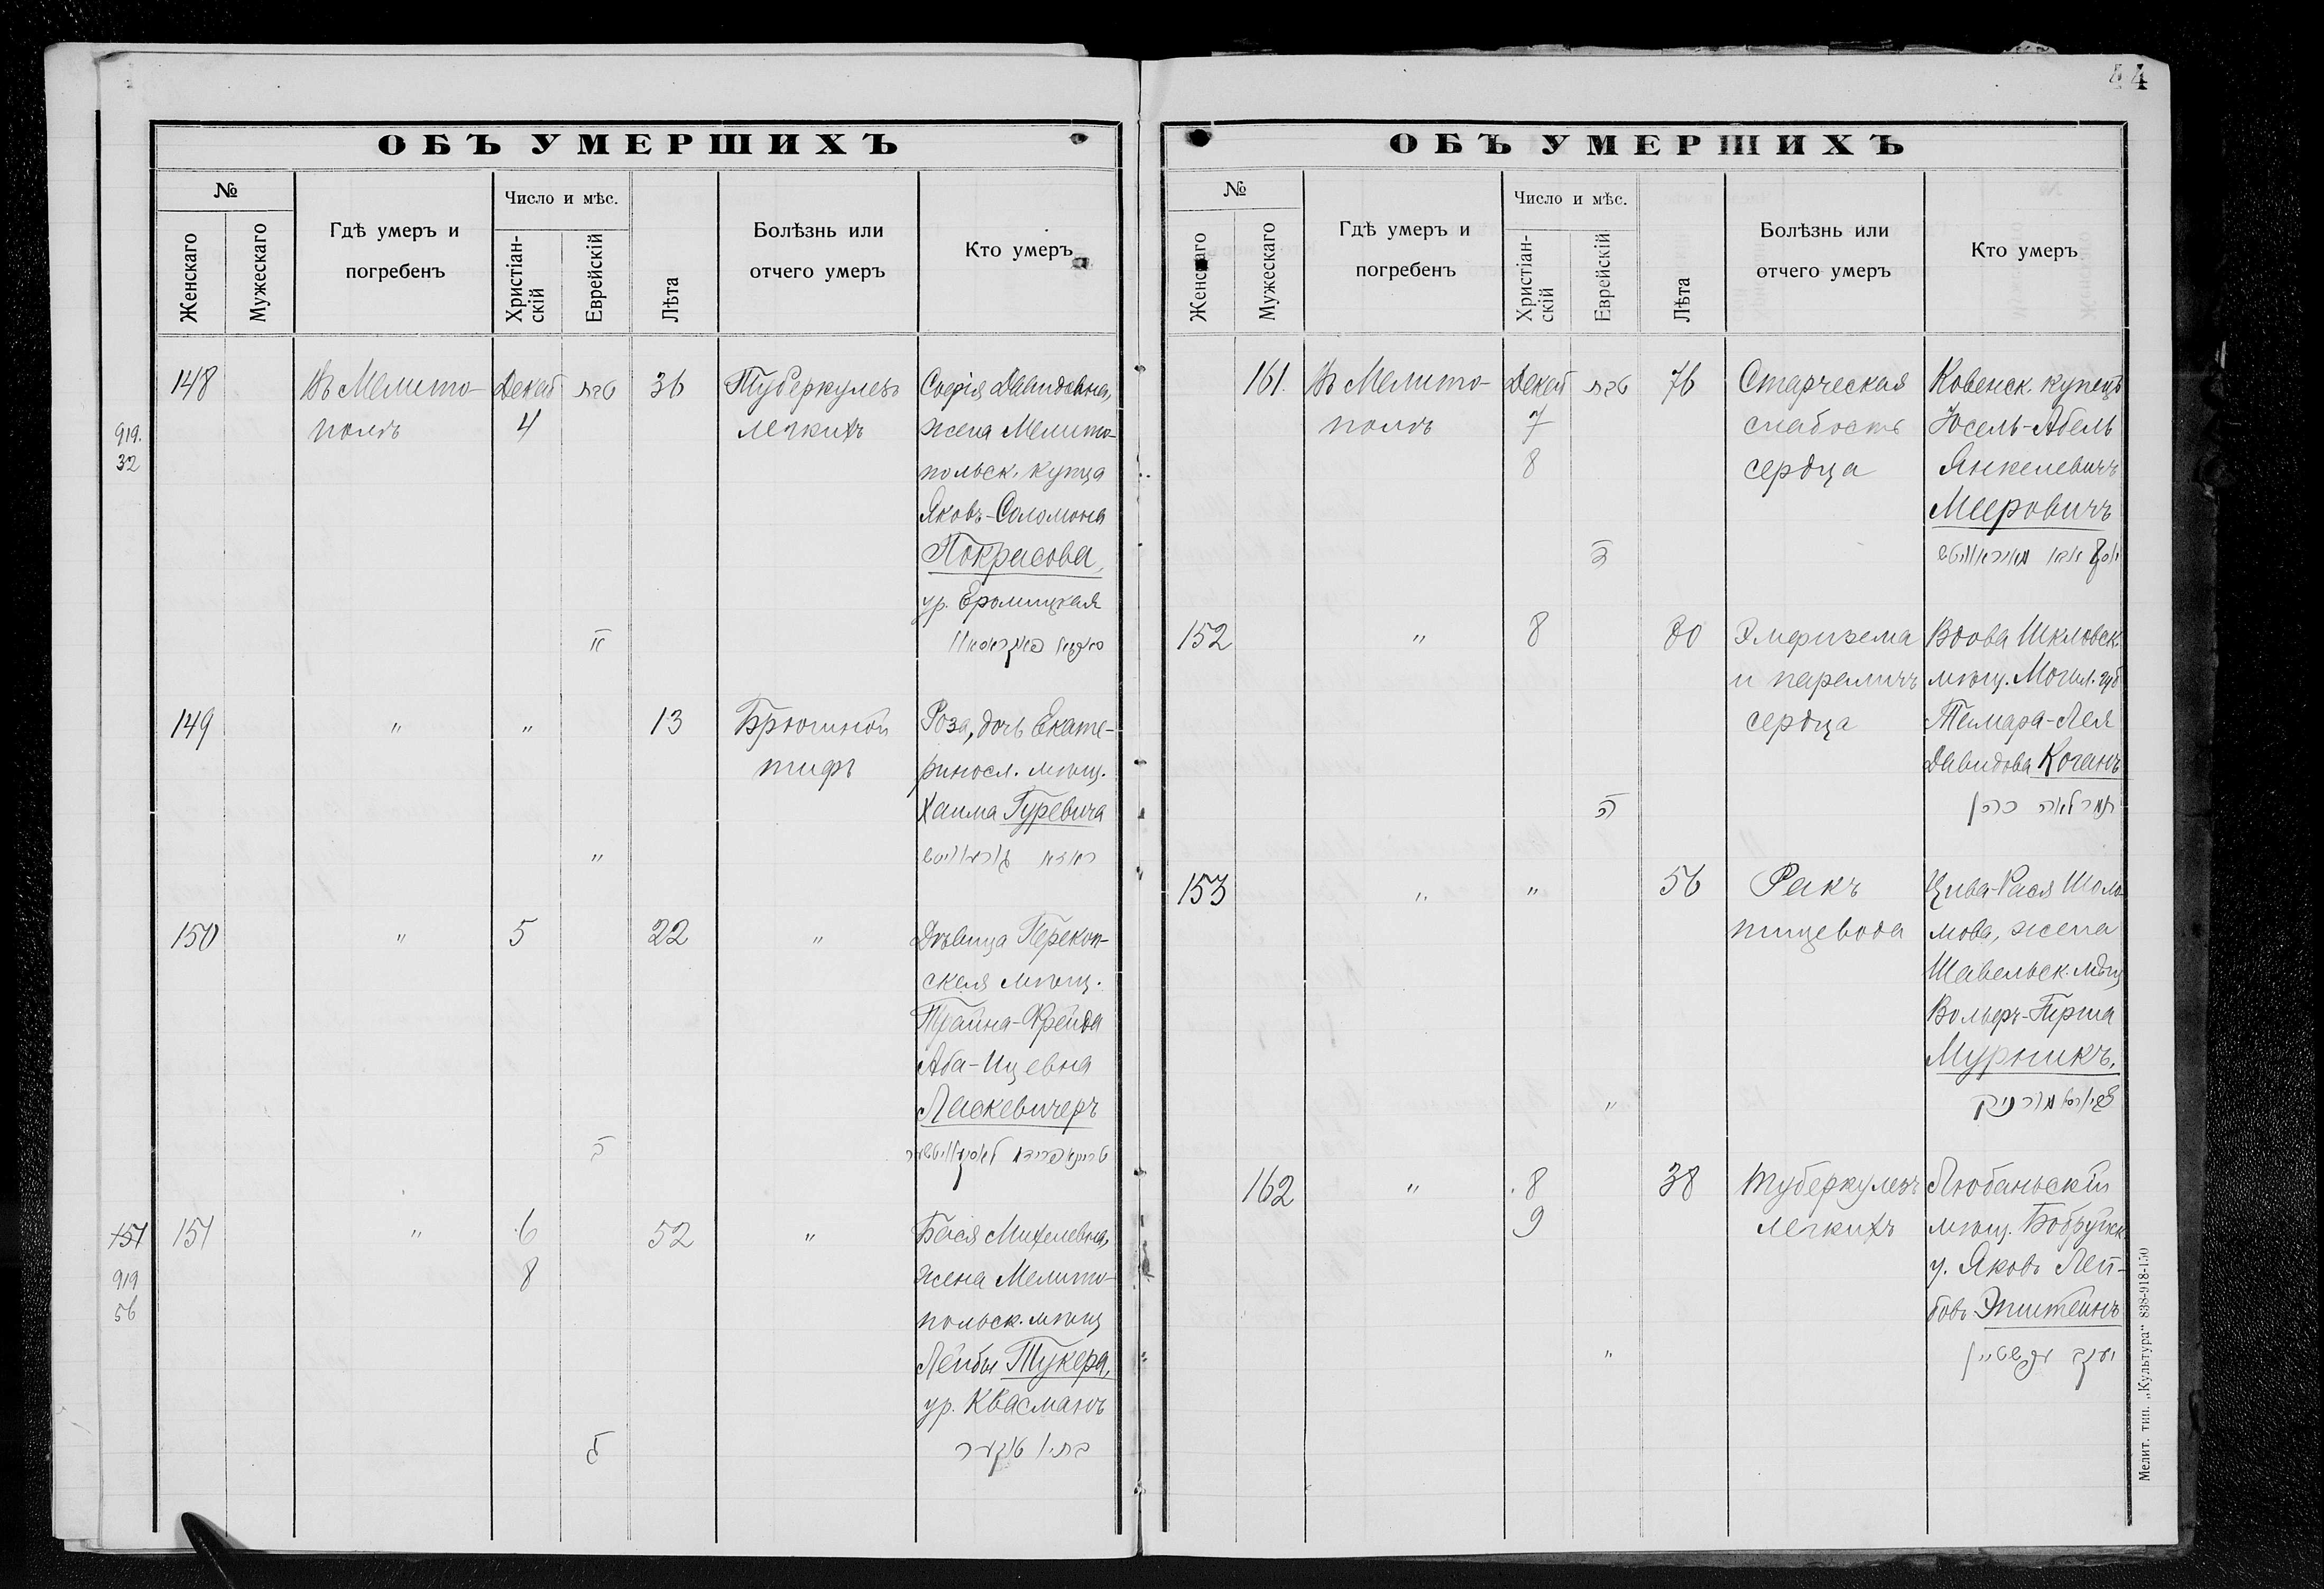 44
ОБЪ УМЕРШИХЪ
№
Женскаго
Мужескаго
Гдѣ умеръ и
погребенъ
Число и мѣс.
Христіан-
скій
Еврейскій
Лѣта
Болѣзнь или
отчего умеръ
Кто умеръ
148
Въ Мелито-
полѣ
Декаб
4
טבת
36
Туберкулезъ
легкихъ
Софія Давидовна,
жена Мелито-
польск. купца
Яковъ-Соломона
Покрасова,
ур.
919.
32
149
"
"
13
Брюшной
тифъ
Роза, дочь Екате-
риносл. мѣщ.
Хаима Гуревича
"
ראזא גוראוויטש
150
"
5
22
"
Дѣвица Перекоп-
ская мѣщ.
Трайна-Фрейда
Аба-Ицевна
Ласкевичеръ
151
919
56
151
"
6
8
52
"
Бася Михелевна,
жена Мелито-
польск. мѣщ
Лейбы Тукера,
ур. Квасманъ
ОБЪ УМЕРШИХЪ
№
Женскаго
Мужескаго
Гдѣ умеръ и
погребенъ
Число и мѣс.
Христіан-
скій
Еврейскій
Лѣта
Болѣзнь или
отчего умеръ
Кто умеръ
161.
Въ Мелито-
полѣ
Декаб
7
8
טבת
76
Старческая
слабость
сердца
Ковенск. купецъ
Юсель-Абель
Янкелевичъ
Мееровичъ
152
"
8
80
Эмфизема
и параличъ
сердца
Вдова Шкловск.
мѣщ. Могил. губ
Тамара-Лея
Давидова Коганъ
ה
תמר לאה כהן
153
"
"
56
Ракъ
пищевода
Цива-Рася Шоло
мова, жена
Шавельск. мѣщ
Вольфъ-Гирша
Мурникъ.
"
162
"
8
9
38
Туберкулезъ
легкихъ
Любаньскій
мѣщ. Бобруйск
у. Яковъ Лей-
бовъ Эпштейнъ
"
יעקב עפשטיין
Мелит. тип. „Культура“ 838-918-150